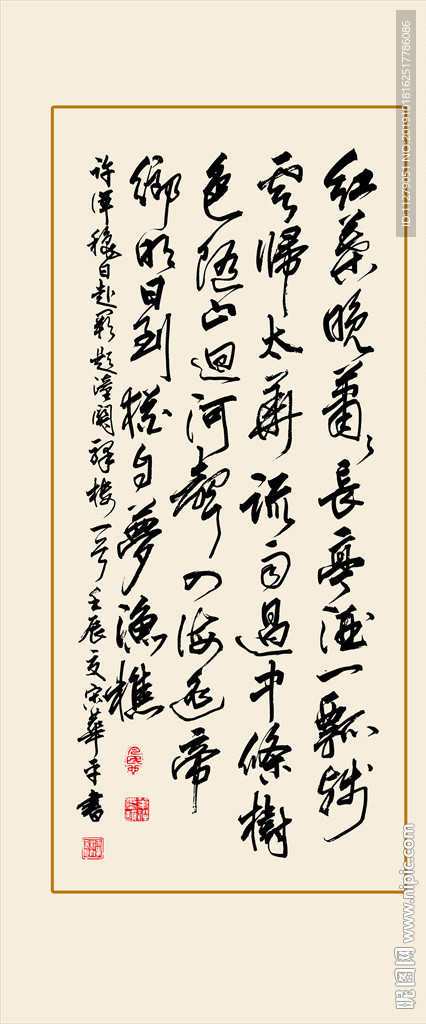 紅葉晚蕭々長亭酒一瓢殘
雲歸太華疏雨過中條樹
色隨山迴河聲入海遙帝
鄉明日到猶自夢漁樵
許渾穐日赴闕題潼關驛樓一首壬辰夏宋華平書
ID:11279051 NO:20191018162517786086
昵图网 www.nipic.com